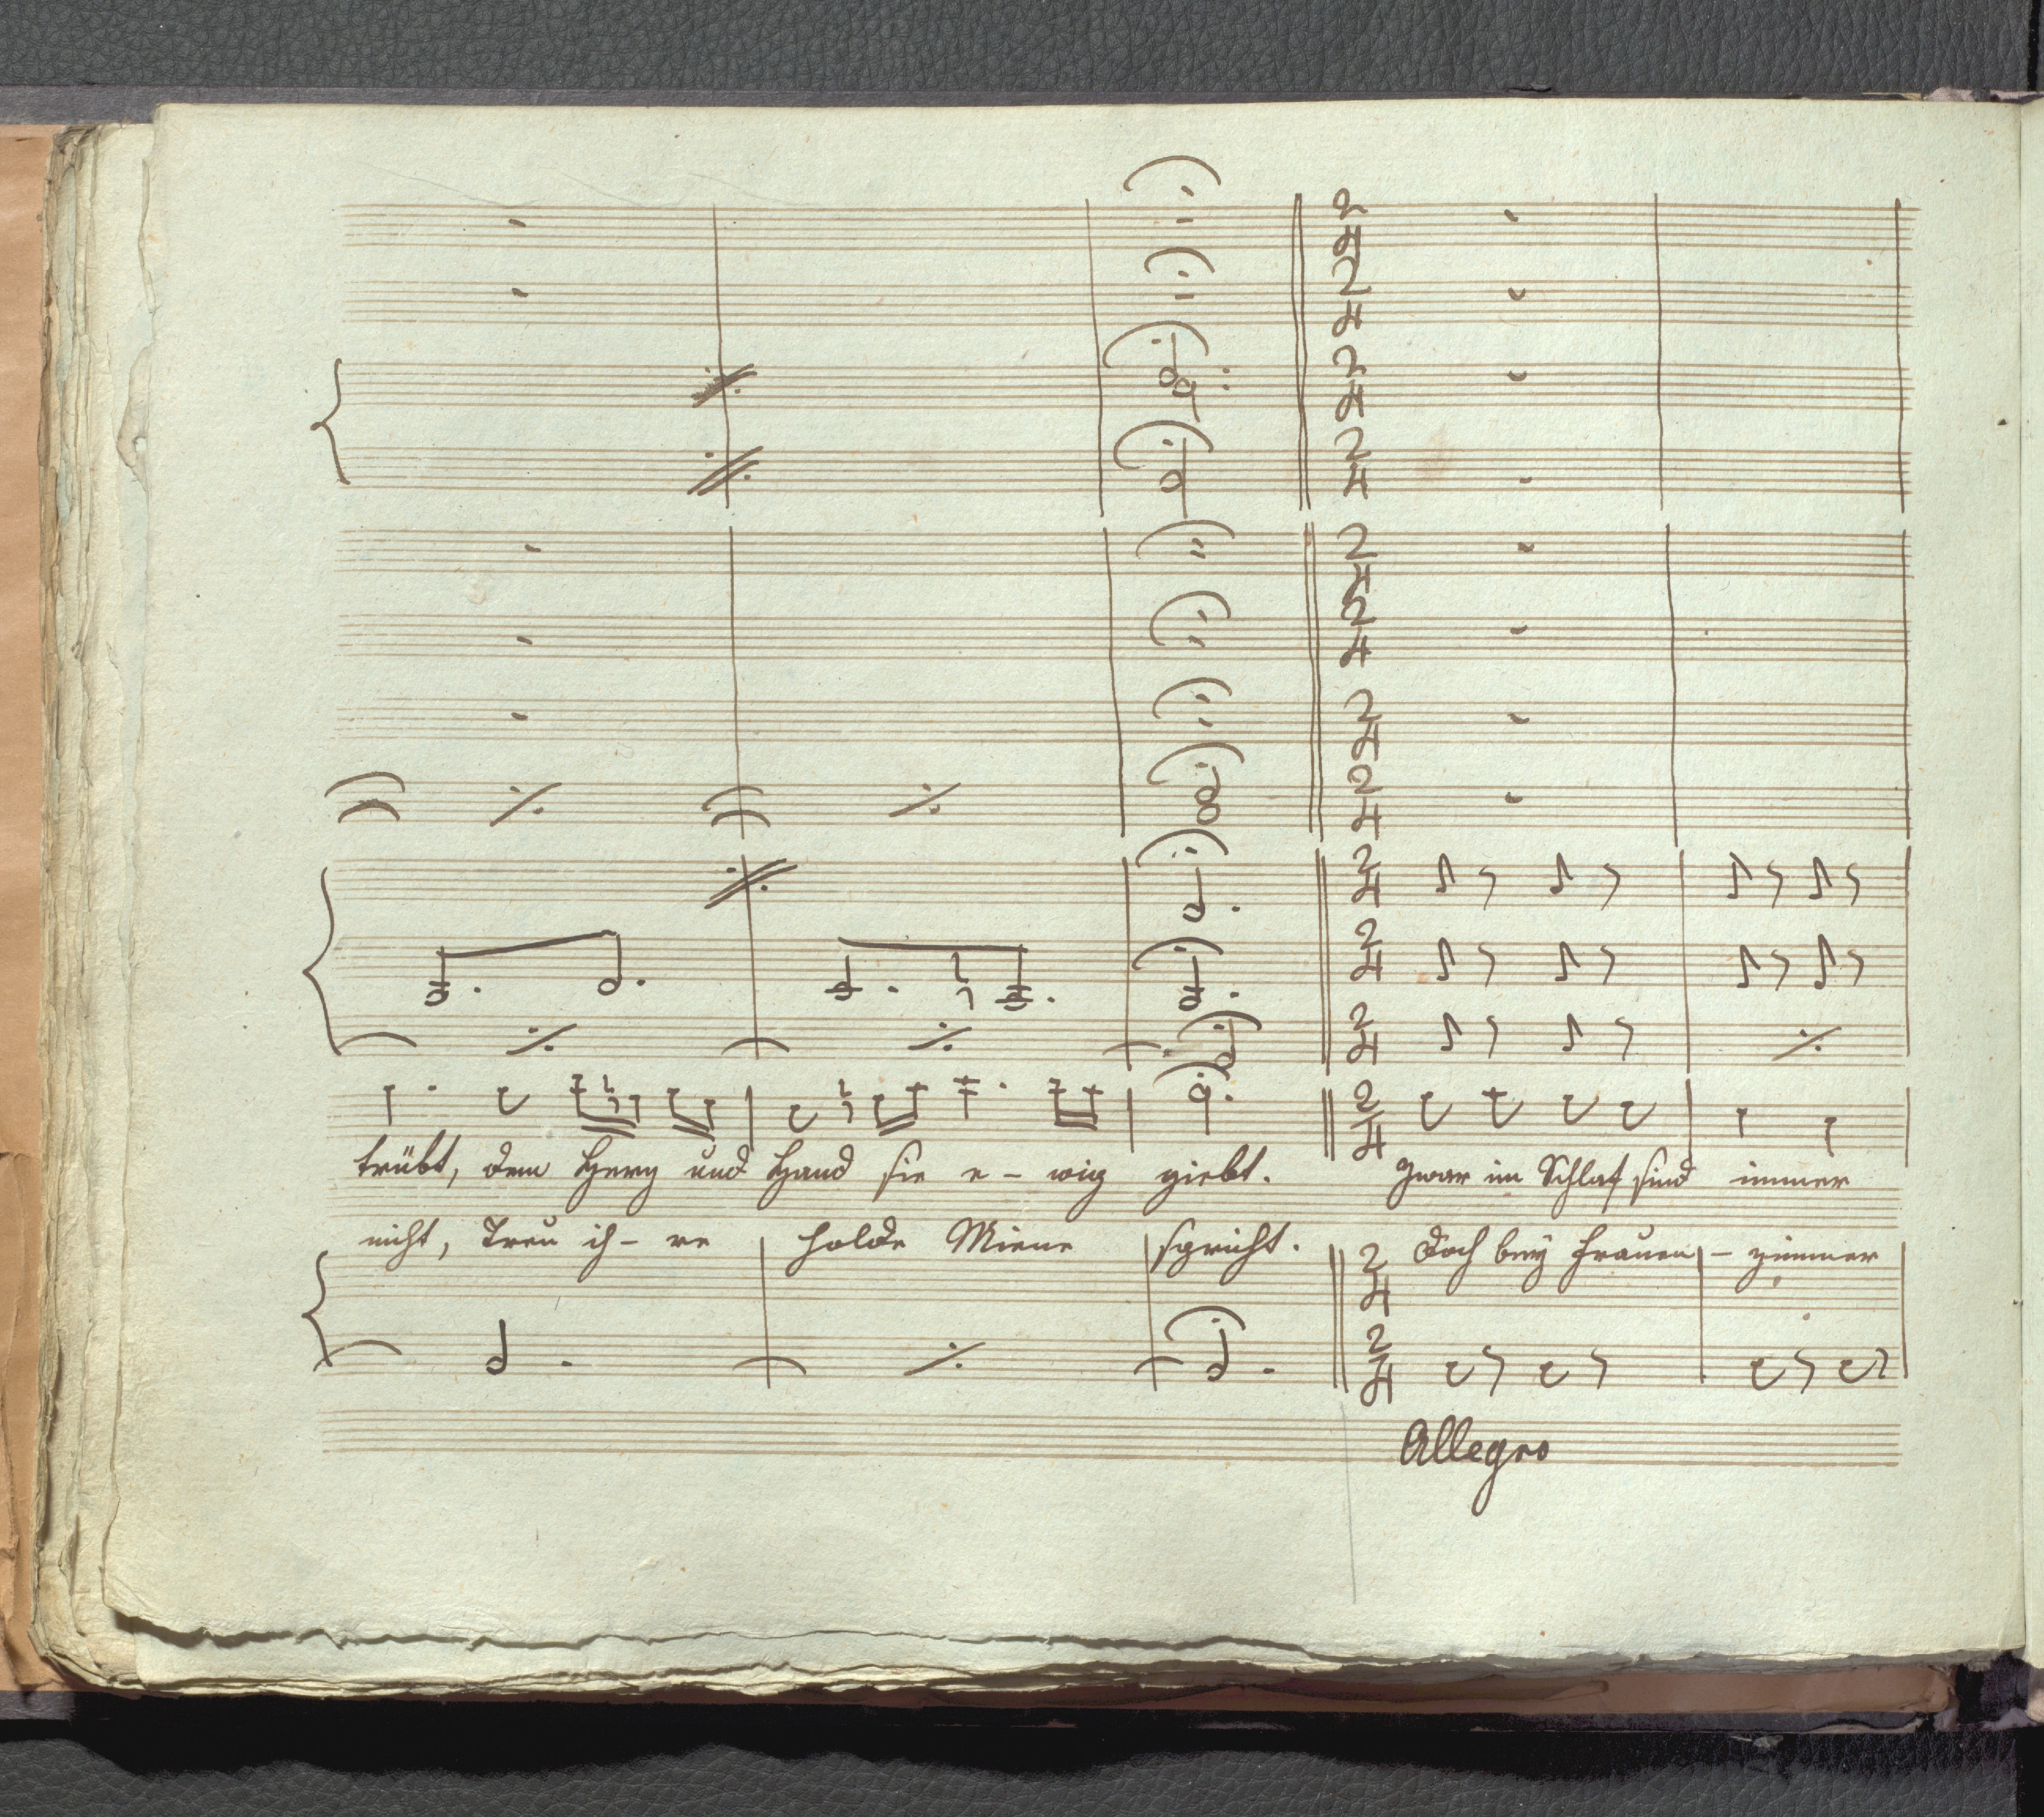 trübt, dem Herz und Hand sie e - wig giebt. Zwar im Schlaf sind immer
nicht, Treu ih - re holde Miene spricht. Doch bey Frauen - zimmer
Allegro